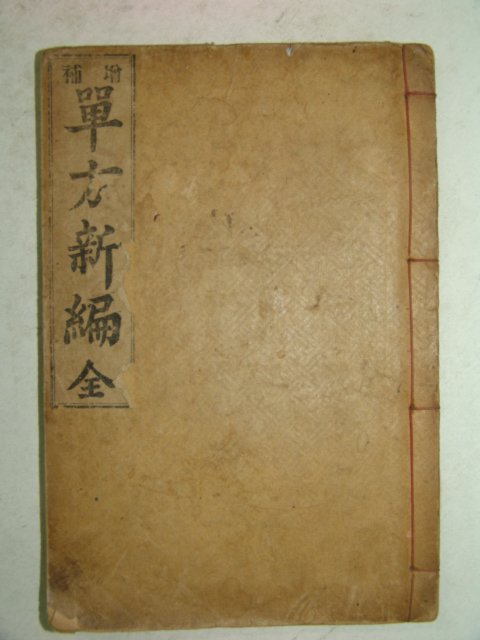 增補
單方新編 全